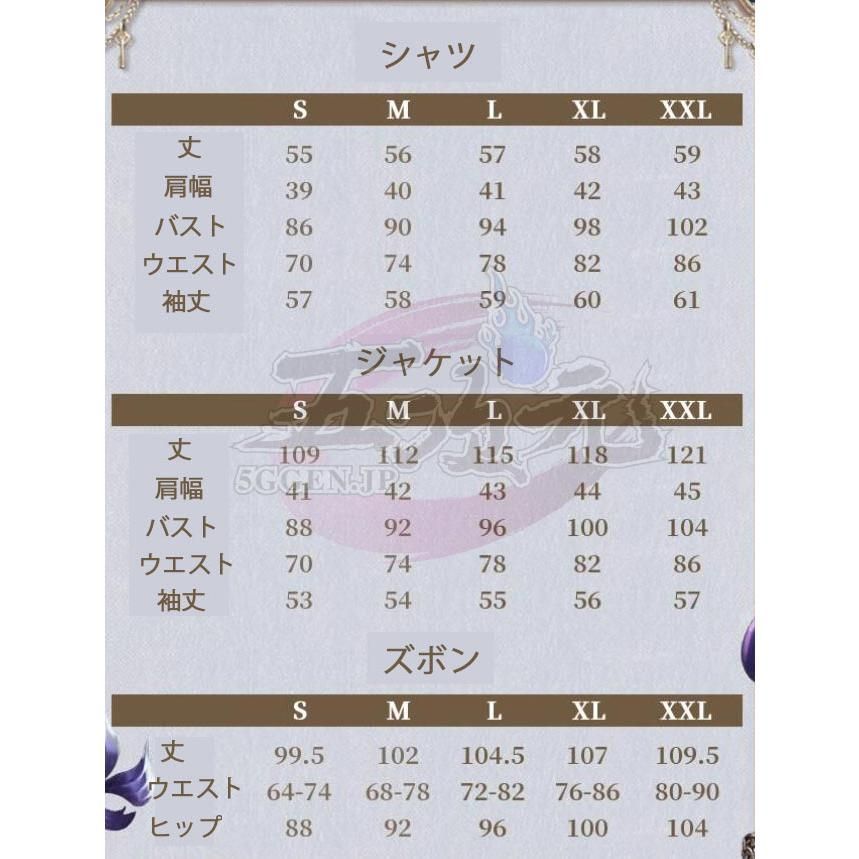 シャツ
S M L XL XXL
丈 55 56 57 58 59
肩幅 39 40 41 42 43
バスト 86 90 94 98 102
ウエスト 70 74 78 82 86
袖丈 57 58 59 60 61
ジャケット
S M L XL XXL
丈 109 112 115 118 121
5GGEN.JP
肩幅 41 42 43 44 45
バスト 88 92 96 100 104
ウエスト 70 74 78 82 86
袖丈 53 54 55 56 57
ズボン
S M L XL XXL
丈 99.5 102 104.5 107 109.5
ウエスト 64-74 68-78 72-82 76-86 80-90
ヒップ 88 92 96 100 104